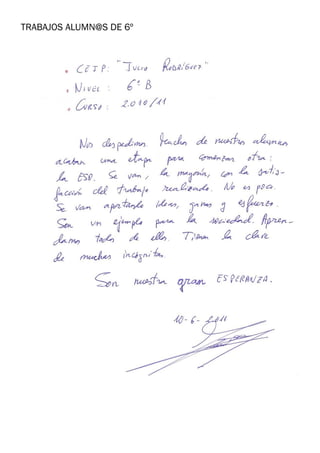 TRABAJOS ALUMN@S DE 6º
CEIP: "Julio Rodríguez"
Nivel: 6º B
Curso: 2.010/11
Nos despedimos. Muchos de nuestros alumnos
acaban una etapa para comenzar otra:
la ESO. Se van, la mayoría, con la satis-
facción del trabajo realizado. No es poco.
Se van aportando ideas, ganas y esfuerzo.
Son un ejemplo para la sociedad. Apren-
damos todos de ellos. Tienen la clave
de muchas incógnitas.
Son nuestra gran ESPERANZA.
10-6-2011